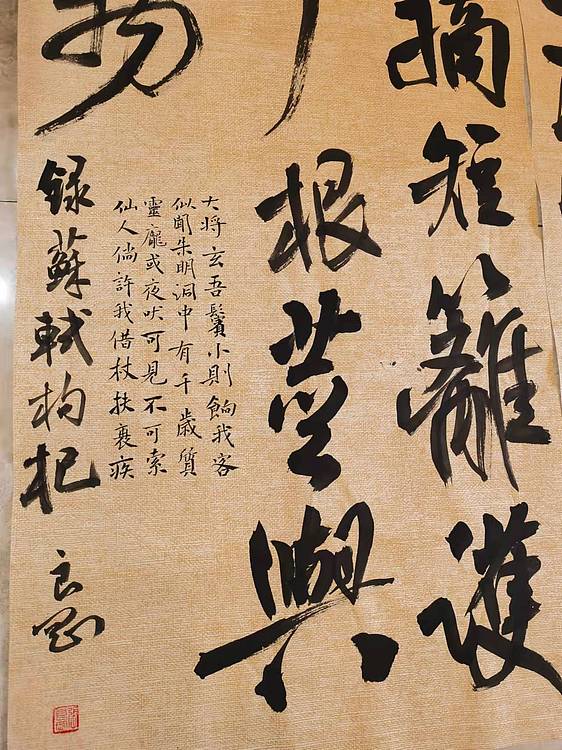 摘短籬護
根莖與
物
大将玄吾鬢小則餉我客
似聞朱明洞中有千歲質
靈龐或夜吠可見不可索
仙人倘許我借杖扶衰疾
録蘇軾枸杞
良